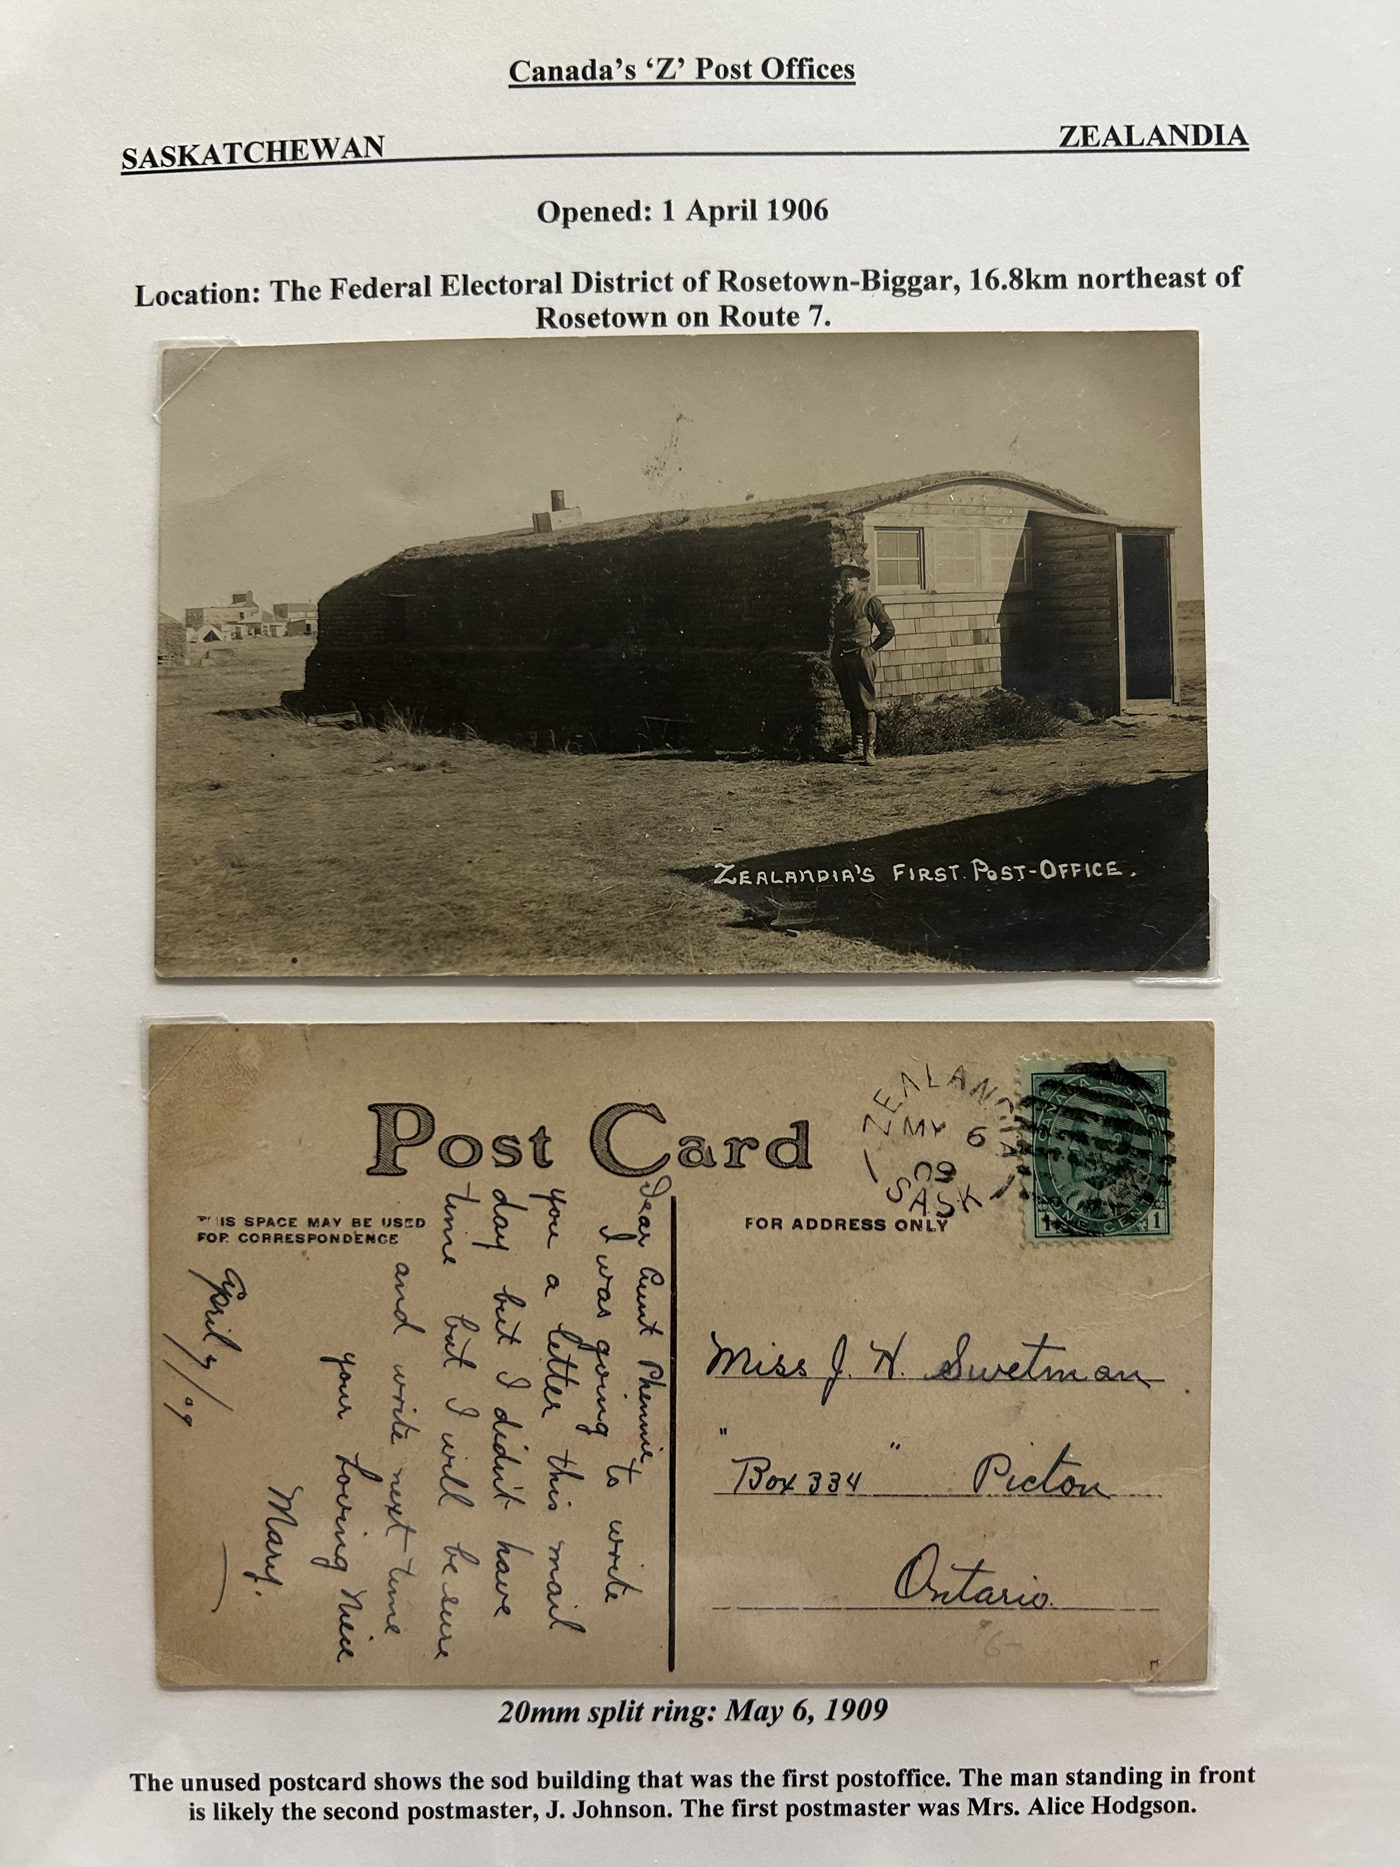 Canada's 'Z' Post Offices
SASKATCHEWAN ZEALANDIA
Opened: 1 April 1906
Location: The Federal Electoral District of Rosetown-Biggar, 16.8km northeast of
Rosetown on Route 7.
ZEALANDIA'S FIRST POST-OFFICE.
Post Card
THIS SPACE MAY BE USED
FOR CORRESPONDENCE
Dear Aunt Phennie,
I was going to write
you a letter this mail
day but I didn't have
time but I will be sure
and write next time
your Loving Niece
Mary.
April /09
ZEALANDIA
MY 6
09
SASK
CANADA POSTAGE
1 ONE CENT 1
FOR ADDRESS ONLY
Miss J. H. Swetman
" Box 334 " Picton
Ontario.
20mm split ring: May 6, 1909
The unused postcard shows the sod building that was the first postoffice. The man standing in front
is likely the second postmaster, J. Johnson. The first postmaster was Mrs. Alice Hodgson.